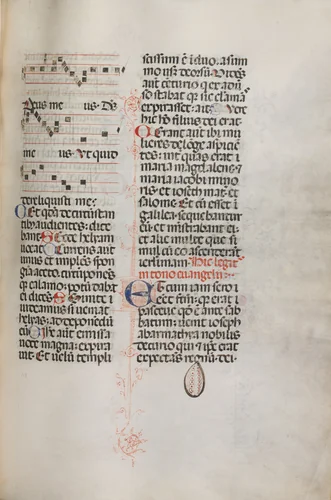 Deus me us. Ds
me us Ut quid
dereliquisti me:
Et qda de circunstan
tibus audientes: dice
bant. Ecce helyam
uocat. Currens aut
unus et inplens spon
giā aceto. circūponēs
q calamo: potū dabat
ei dicēs. Sinite i
uideamus si ueniat
helyas: ad deponēdū
eū. Ihs aūt emissa
uoce magna: expira
uit. Et uelū templi
scissum ē ī duo. a sum
mo usq deorsū. Uidēs
aūt cēturio q ex adūso
stabat qr sic clamās
expirasset: ait. Uere
hic hō filius dei erat.
Erant aūt ibi mu
lieres de lōge aspiciē
tes: int quas erat
maria magdalene: et
maria iacobi mino
ris: et ioseth mat: et
salome. Et cū esset ī
galilea: sequebantur
eū: et ministrabant ei:
et alie multe que si
mul cū eo ascenderāt
ierosolimam. Hic legit
in tono euangelii.
Et cum iam sero
eēt factū: qr erat
parasceue qd ē ante sab
batum: uenit ioseph
ab arimathya nobilis
decurio qui et ipse erat
expectās regnū dei.